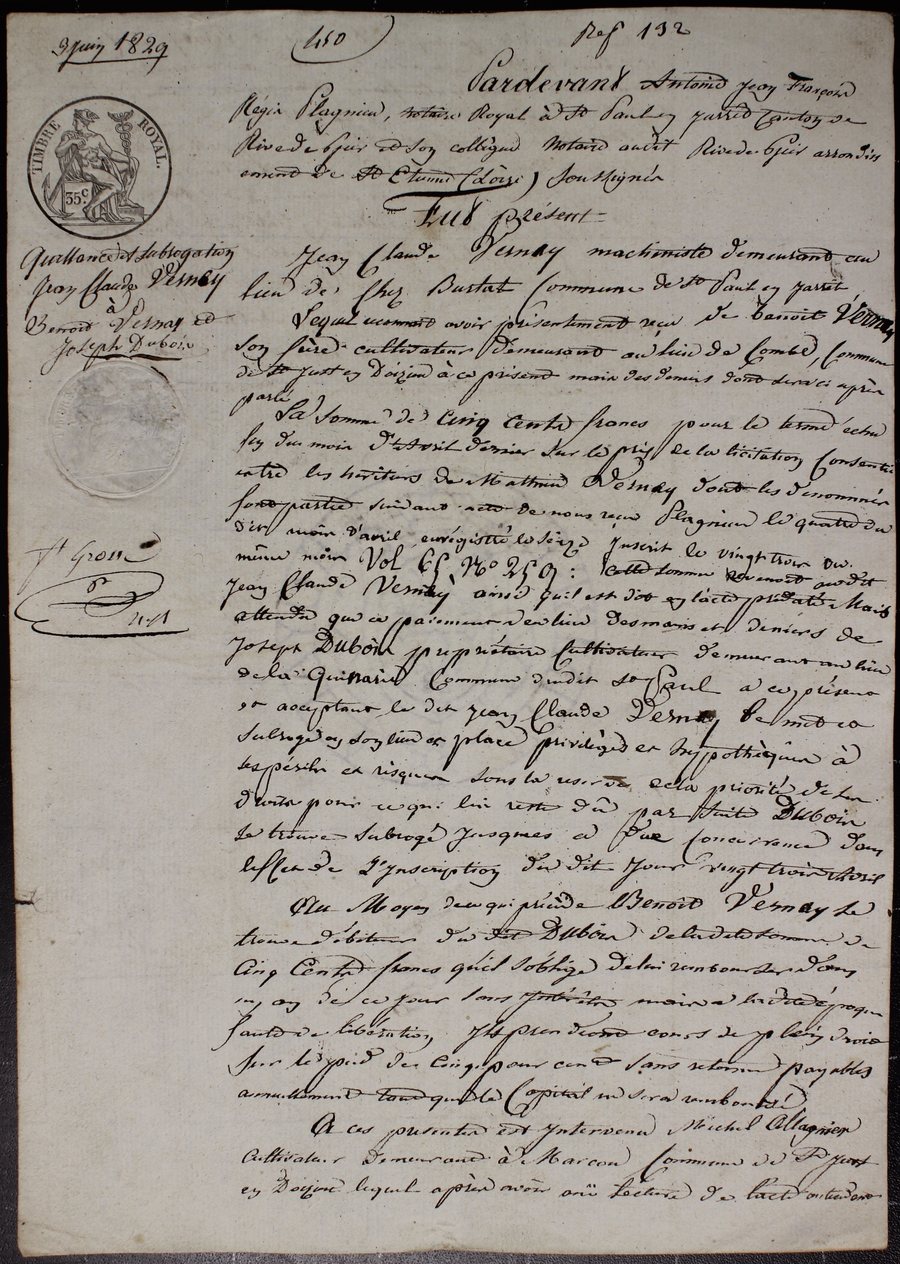 3 juin 1829
(450)
Ref 132
Pardevant Antoine Jean François
Régis Plagnieu, notaire Royal à St Paul en jarret Canton de
Rivedegier et son collègue Notaire audit Rivedegier arrondiss
ement de St Etienne (Loire) soussignés
TIMBRE ROYAL.
35 c
Fut présent
Quittance et subrogation
Jean Claude Vernay
à
Benoit Vernay et
Joseph Dubois
Jean Claude Vernay machiniste demeurant au
lieu de Chez Burtat Commune de St Paul en jarret
Lequel reconnait avoir présentement reçu de Benoit Vernay
son frère cultivateur demeurant au lieu de Combe, Commune
de St Just en Doizieu à ce présent mais des deniers dont sera ci après
parlé
La somme de Cinq Cents francs pour le terme échu
fin du mois d'Avril dernier sur le prix de la licitation Consentie
entre les héritiers de Mathieu Vernay dont les dénommés
font partie suivant acte de nous reçu Plagnieu le quatre du
dit mois d'avril enregistré le seize Inscrit le vingt trois du
même mois Vol 65 No 259 : Cette somme revenant audit
Jean Claude Vernay ainsi qu'il est dit en l'acte prédaté Mais
attendu que ce paiement a eu lieu des mains et deniers de
Joseph Dubois propriétaire Cultivateur demeurant au lieu
de la Commune dudit St Paul à ce présent
et acceptant le dit Jean Claude Vernay le met et
subroge en son lieu et place privilèges et hypothèques à
ses périls et risques sous la reserve de la priorité de ses
droits pour ce qui lui reste dû par suite Dubois
se trouve subrogé jusques à due concurrence dans
l'effet de l'Inscription du dit jour vingt trois Avril
gt Grosse
Au Moyen de ce qui précède Benoit Vernay se
trouve débiteur du dit Dubois de la dite somme de
Cinq Cents francs qu'il s'oblige de lui rembourser dans
un an de ce jour sans intérêts mais à la dite époque
faute de libération Ils prendront cours de plein droit
sur le pied de Cinq pour cent sans retenue payables
annuellement tant que le Capital ne sera remboursé
A ces présentes est Intervenu Michel
Cultivateur demeurant à Marcou Commune de St Just
en Doizieu lequel après avoir ouï lecture de l'acte